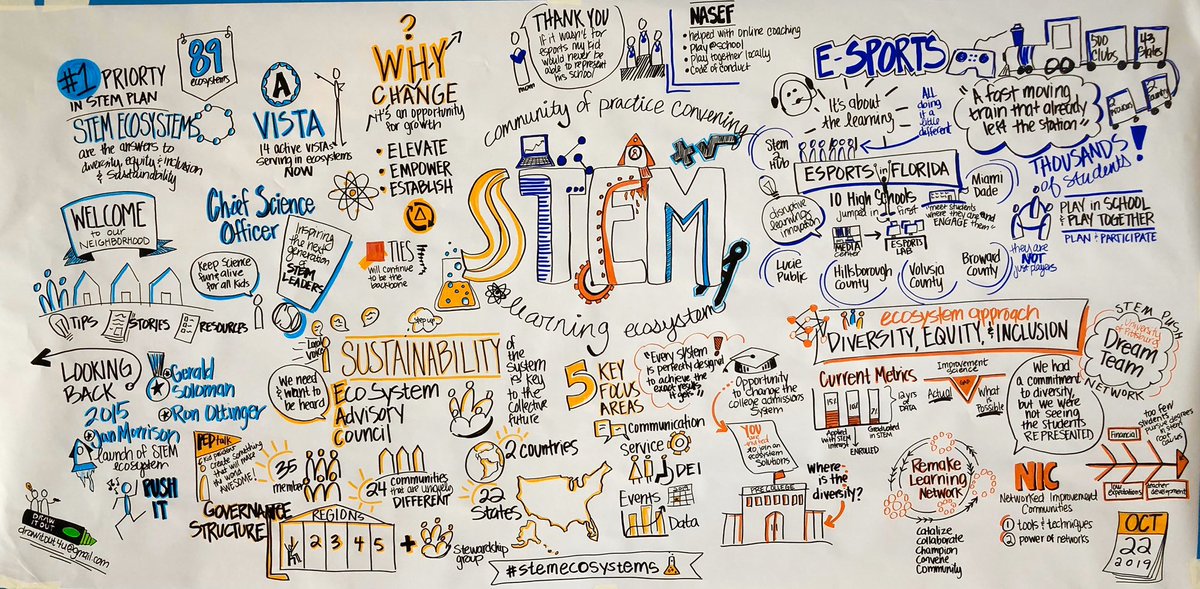 #1 PRIORTY
IN STEM PLAN
STEM ECOSYSTEMS
are the answers to
diversity, equity & inclusion
& sustainability
89
ecosystems
A
VISTA
14 active VISTAs
serving in ecosystems
NOW
?
WHY
CHANGE
it's an opportunity
for growth
• ELEVATE
• EMPOWER
• ESTABLISH
THANK YOU
If it wasn't for
esports my kid
would never be
able to represent
his school
mom
NASEF
• helped with online coaching
• play @ school
• play together locally
• code of conduct
E-SPORTS
500
Clubs
43
States
"A fast moving
train that already
left the station"
It's about
the learning
ALL
doing
it a
little
different
WELCOME
to our
NEIGHBORHOOD
TIPS
STORIES
RESOURCES
Chief Science
Officer
Inspiring
the next
generation
of
STEM
LEADERS
Keep Science
fun & alive
for all kids
TIES
will continue
to be the
backbone
community of practice convening
STEM
learning ecosystem
Stem
Hub
disruptive
learning
innovation
ESPORTS in FLORIDA
10 High Schools
jumped in first
MEDIA
Center
ESPORTS
LAB
"meet students
where they are and
ENGAGE them"
Miami
Dade
Lucie
Public
Hillsborough
County
Volusia
County
Broward
County
THOUSANDS!
of students
PLAY IN SCHOOL
& PLAY TOGETHER
PLAN + PARTICIPATE
they are
NOT
just players
LOOKING
BACK
2015
Gerald
Soloman
Ron Ottinger
Jan Morrison
launch of STEM
ecosystem
PUSH
IT
DRAW
IT OUT
drawitout4u@gmail.com
step up
We need
& want to
be heard
SUSTAINABILITY
of the
system
is key
to the
collective
future
EcoSystem
Advisory
Council
PEPtalk
create something
that will make
the world
AWESOME!
35
members
24
communities
that are uniquely
DIFFERENT
2 countries
22
States
GOVERNANCE
STRUCTURE
REGIONS
1 2 3 4 5
+
stewardship
group
5 KEY
FOCUS
AREAS
communication
service
DEI
Events
Data
"Every system
is perfectly designed
to achieve the
exact results
it gets"
!
Opportunity
to change the
college admissions
system
YOU
are invited
to join an
ecosystem
Solutions
PRECOLLEGE
Where
is the
diversity?
#stemecosystems
ecosystem approach
DIVERSITY, EQUITY, & INCLUSION
STEM PUSH
University of Pittsburgh
Dream
Team
NETWORK
Current Metrics
12 yrs
of DATA
Applied
w/ STEM
interest
ENROLLED
Graduated
in STEM
Improvement
Science
Actual
GAP
What
is
Possible
We had a
commitment
to diversity,
but we were
not seeing
the students
REPRESENTED
Remake
Learning
Network
catalize
collaborate
Champion
Convene
Community
NIC
Networked Improvement
Communities
1 tools & techniques
2 power of networks
Financial
low
expectations
teacher
development
too few
students
OCT
22
2019